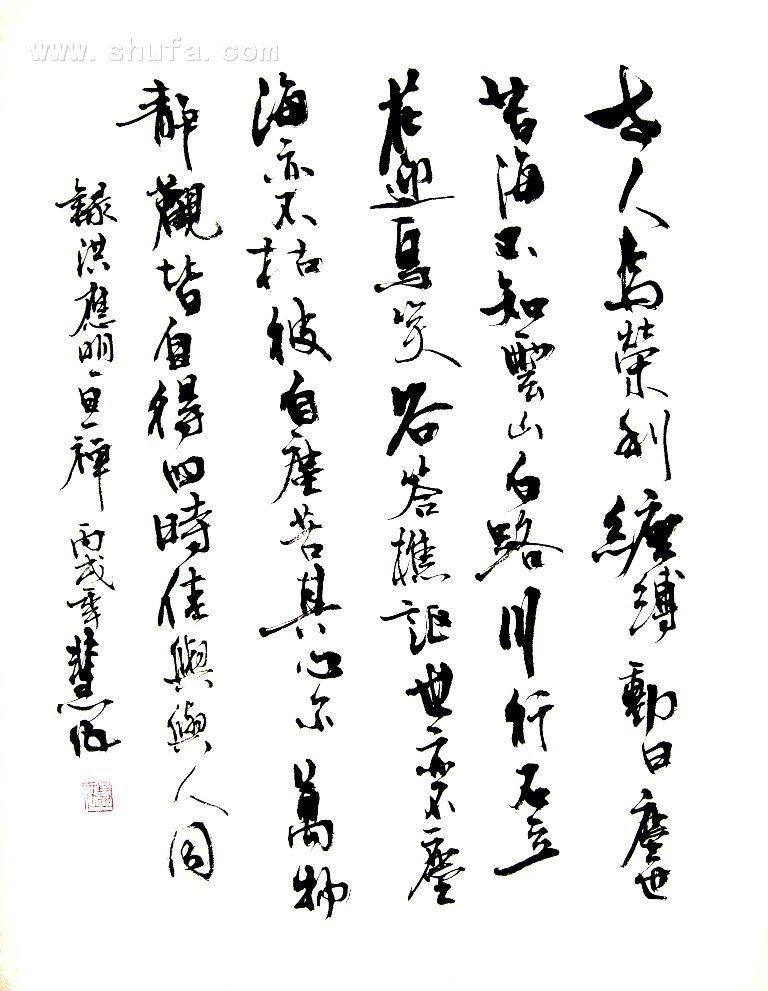 www.shufa.com
古人為榮利纏縛動曰塵世
苦海不知雲山白路川行石立
花迎鳥笑谷答樵謳世亦不塵
海亦不枯彼自塵苦其心爾萬物
靜觀皆自得四時佳興與人同
錄洪應明禪丙戌年慧